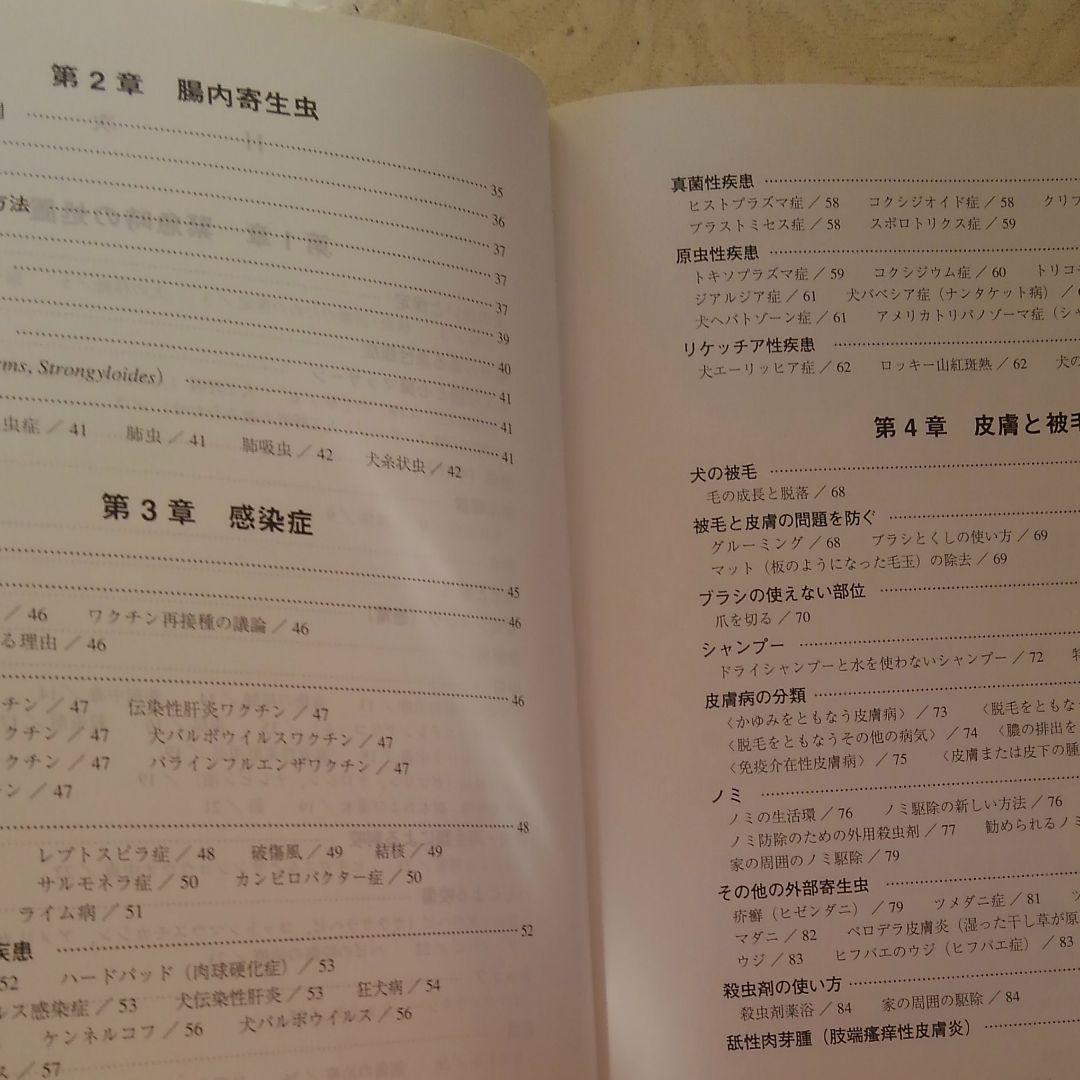 第2章 腸内寄生虫
35
36
方法
37
37
37
39
40
rms, Strongyloides）
41
41
41
虫症／41 肺虫／41 肺吸虫／42 犬糸状虫／42
第3章 感染症
45
46
／46 ワクチン再接種の議論／46
る理由／46
46
チン／47 伝染性肝炎ワクチン／47
クチン／47 犬パルボウイルスワクチン／47
クチン／47 パラインフルエンザワクチン／47
ン／47
48
レプトスピラ症／48 破傷風／49 結核／49
サルモネラ症／50 カンピロバクター症／50
ライム病／51
疾患 52
52 ハードパッド（肉球硬化症）／53
ルス感染症／53 犬伝染性肝炎／53 狂犬病／54
ケンネルコフ／56 犬パルボウイルス／56
ス／57
真菌性疾患
ヒストプラズマ症／58 コクシジオイド症／58 クリプ
ブラストミセス症／58 スポロトリクス症／59
原虫性疾患
トキソプラズマ症／59 コクシジウム症／60 トリコモ
ジアルジア症／61 犬バベシア症（ナンタケット病）／6
犬ヘパトゾーン症／61 アメリカトリパノゾーマ症（シャ
リケッチア性疾患
犬エーリッヒア症／62 ロッキー山紅斑熱／62 犬の
第4章 皮膚と被毛
犬の被毛
毛の成長と脱落／68
被毛と皮膚の問題を防ぐ
グルーミング／68 ブラシとくしの使い方／69
マット（板のようになった毛玉）の除去／69
ブラシの使えない部位
爪を切る／70
シャンプー
ドライシャンプーと水を使わないシャンプー／72 特
皮膚病の分類
〈かゆみをともなう皮膚病〉／73 〈脱毛をともなう
〈脱毛をともなうその他の病気〉／74 〈膿の排出を
〈免疫介在性皮膚病〉／75 〈皮膚または皮下の腫
ノミ
ノミの生活環／76 ノミ駆除の新しい方法／76
ノミ防除のための外用殺虫剤／77 勧められるノミ
家の周囲のノミ駆除／79
その他の外部寄生虫
疥癬（ヒゼンダニ）／79 ツメダニ症／81 ツ
マダニ／82 ペロデラ皮膚炎（湿った干し草が原
ウジ／83 ヒフバエのウジ（ヒフバエ症）／83
殺虫剤の使い方
殺虫剤薬浴／84 家の周囲の駆除／84
舐性肉芽腫（肢端瘙痒性皮膚炎）